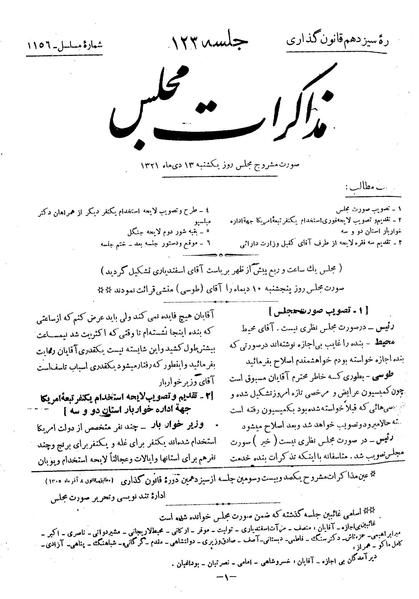 رۀ سیزدهم قانون گذاری
جلسه ۱۲۳
شمارۀ مسلسل - ۱۱۵۶
مذاکرات مجلس
صورت مشروح مجلس روز یکشنبه ۱۳ دی ماه ۱۳۲۱
مطالب:
۱ - تصویب صورت مجلس
۲ - تقدیم و تصویب لایحه فوری استخدام یکنفر تبعۀ امریکا جهة اداره
خواربار استان دو و سه
۳ - تقدیم سه فقره لایحه از طرف آقای کفیل وزارت دارائی
۴ - طرح و تصویب لایحه استخدام یکنفر دیگر از همراهان دکتر
میلسپو
۵ - بقیه شور دوم لایحه جنگل
۶ - موقع و دستور جلسه بعد - ختم جلسه
(مجلس یك ساعت و ربع پیش از ظهر بریاست آقای اسفندیاری تشکیل گردید)
صورت مجلس روز پنجشنبه ۱۰ دیماه را آقای (طوسی) منشی قرائت نمودند ※※
[۱ - تصویب صورت مجلس]
رئیس - در صورت مجلس نظری نیست. آقای محیط
محیط - بنده را غایب بی اجازه نوشته‌اند در صورتی که
بنده اجازه خواسته بودم خواهشمندم اصلاح بفرمائید
طوسی - بطوری که خاطر محترم آقایان مسبوق است
چون کمیسیون عرایض و مرخصی تازه امروز تشکیل شده و
هائی که قبلا خواسته شده بود بکمیسیون رفته است
حالا میرود و تصویب خواهد شد و بعد اصلاح میشود
رئیس - در صورت مجلس نظری نیست (خیر) صورت
مجلس تصویب شد. متأسفانه با اینکه تذکرات بنده خدمت
آقایان هیچ فایده نمی کند ولی باید عرض کنم که از ساعتی
که بنده اینجا نشسته‌ام تا وقتی که اکثریت شد نیمساعت
بیشتر طول کشید و این شایسته نیست یکقدری آقایان رعایت
بفرمائید و اینطور که رفتار میشود یکقدری اسباب تأسف است
آقای وزیر خواربار
[۲ - تقدیم و تصویب لایحه استخدام یکنفر تبعۀ امریکا
جهة اداره خواربار استان دو و سه]
وزیر خواربار - چند نفر متخصص از دولت امریکا
استخدام شده‌اند یکنفر برای غله و یکنفر برای برنج و چند
نفر هم برای استانها و ایالات و عجالتاً لایحه استخدام
※ عین مذاکرات مشروح یکصد و بیست و سومین جلسه از سیزدهمین دورۀ قانون گذاری (مطابق قانون ۸ آذر ماه ۱۳۰۵)
ادارۀ تند نویسی و تحریر صورت مجلس
※※ اسامی غائبین جلسه گذشته که ضمن صورت مجلس خوانده شده است
غائبین بی اجازه - آقایان:
دیر آمدگان بی اجازه - آقایان:
- ۱ -